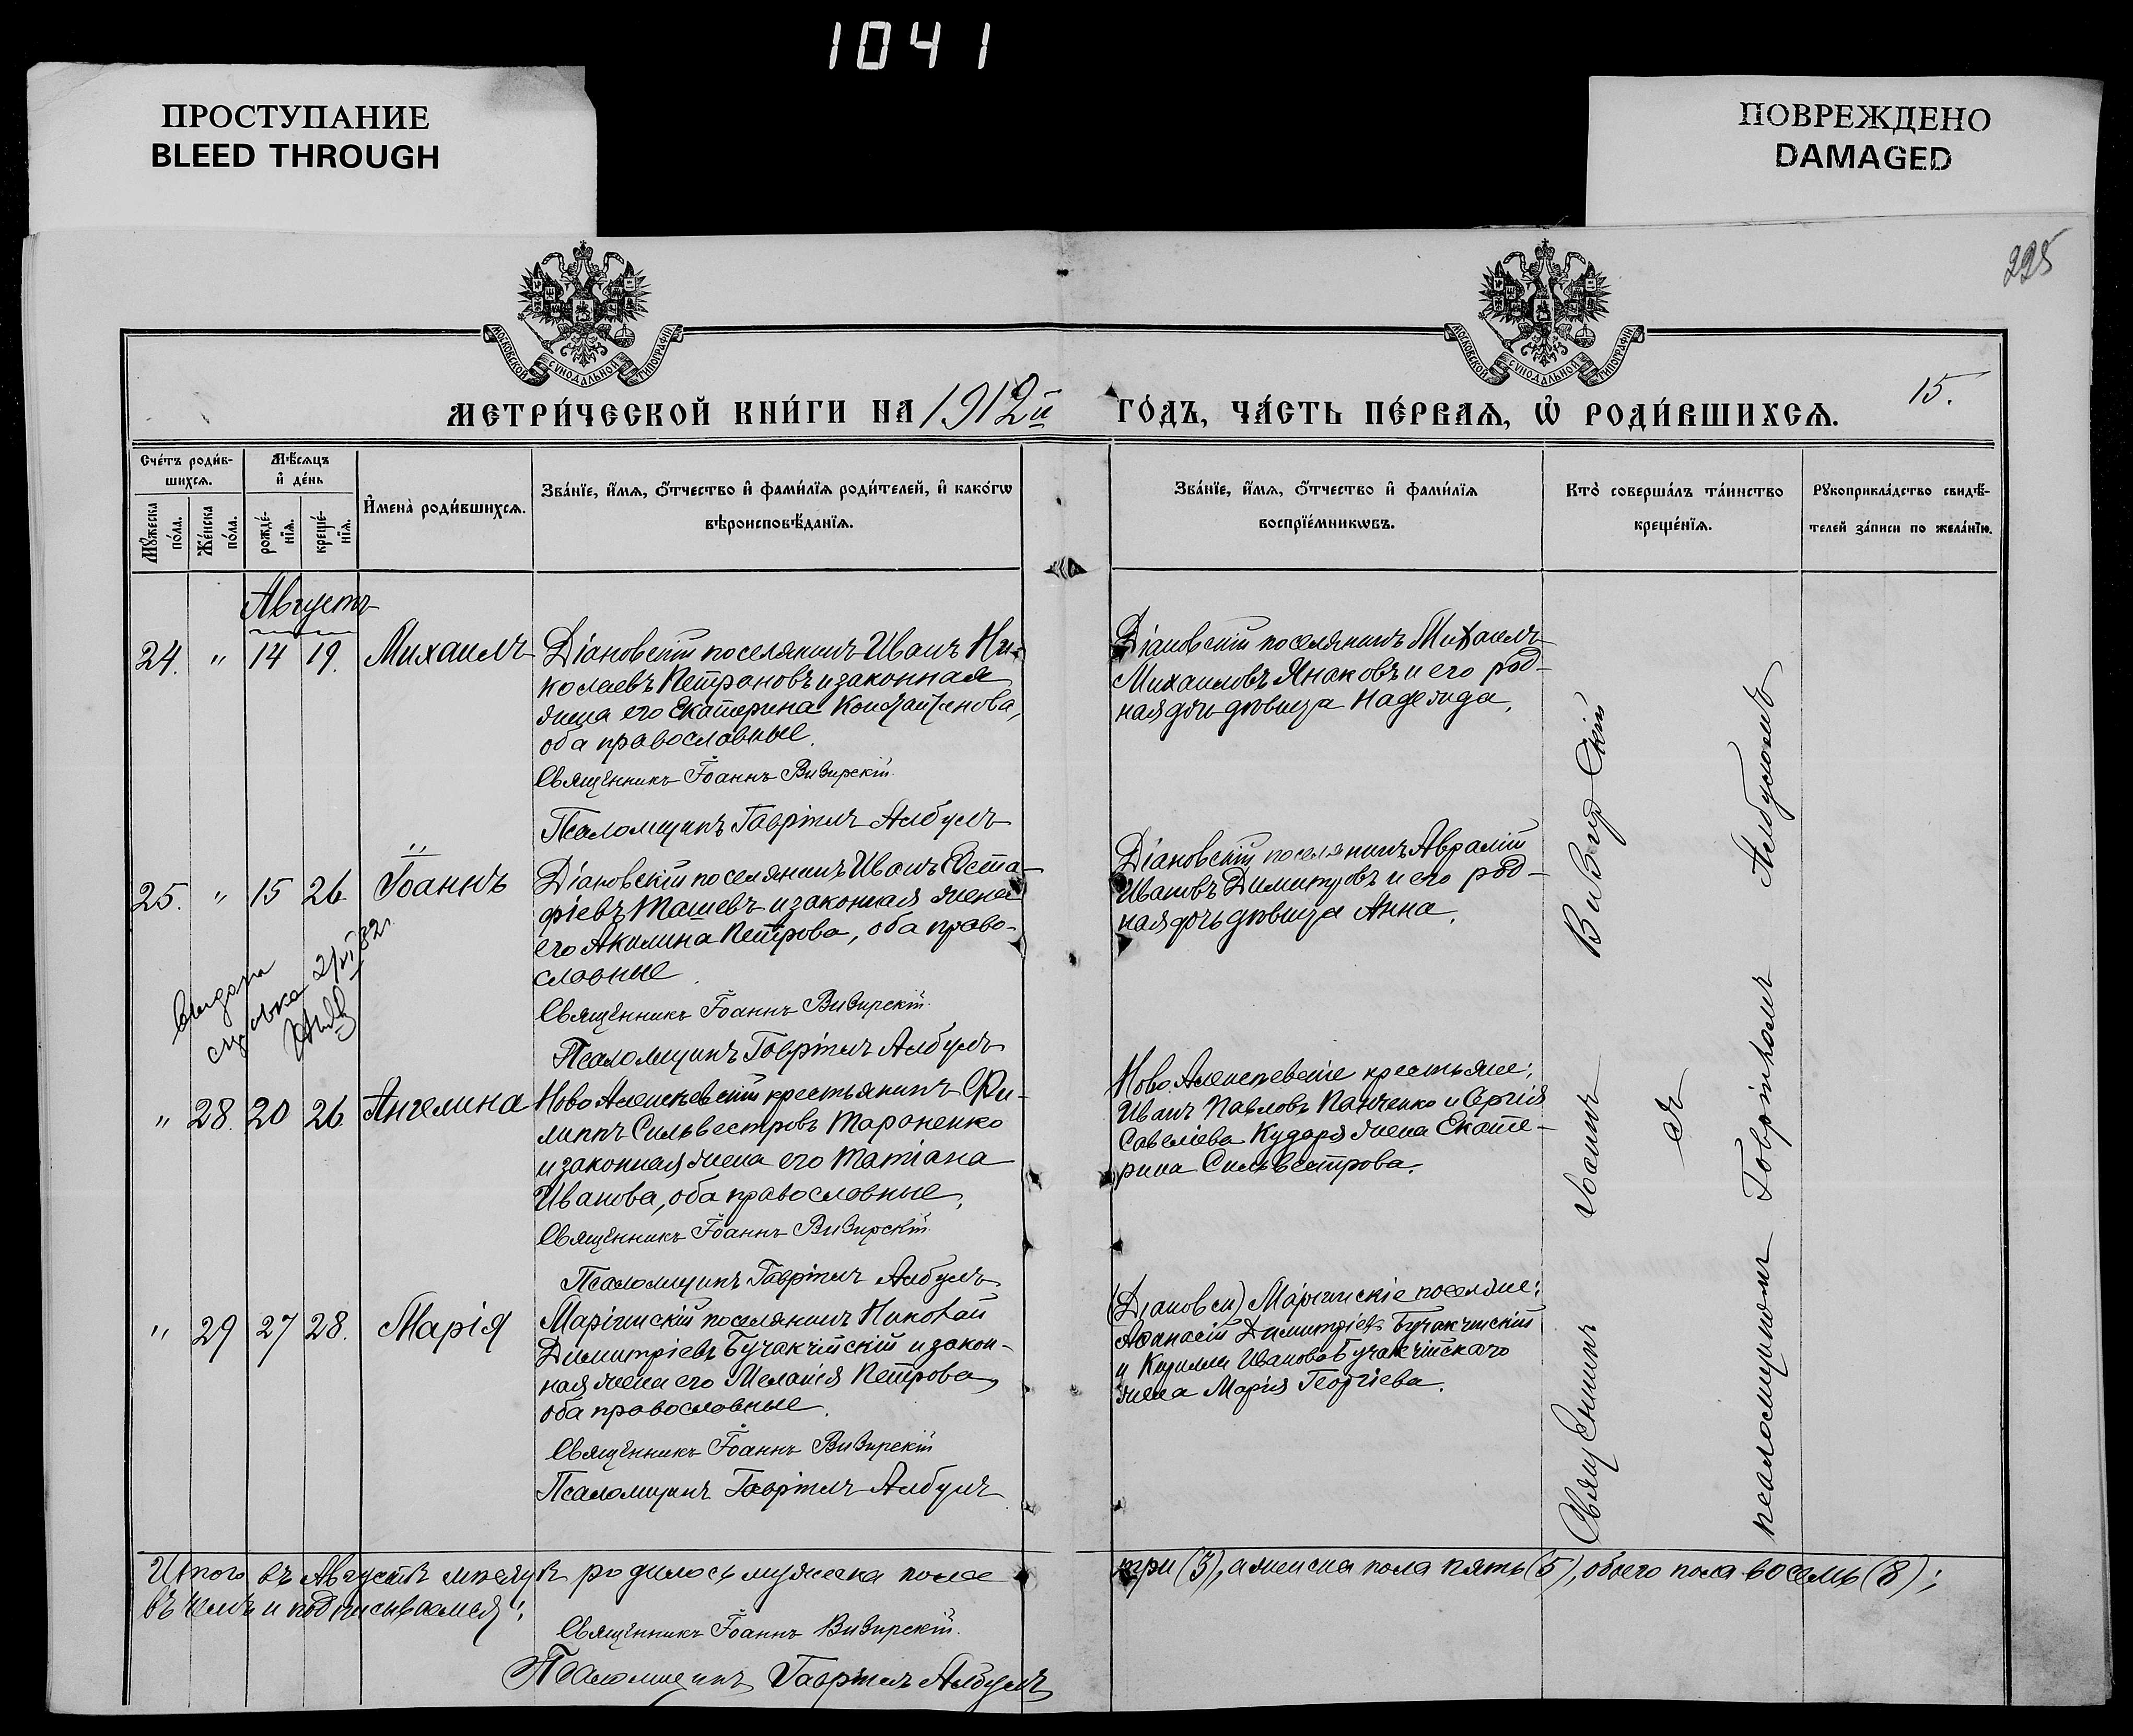 1041
ПРОСТУПАНИЕ
BLEED THROUGH
ПОВРЕЖДЕНО
DAMAGED
225
МОСКОВСКОЙ СѴНОДАЛЬНОЙ ТИПОГРАФІИ
МОСКОВСКОЙ СѴНОДАЛЬНОЙ ТИПОГРАФІИ
15.
МЕТРИ́ЧЕСКОЙ КНИ́ГИ НА 1912й ГО́ДЪ, ЧА́СТЬ ПЕ́РВАѦ, Ѡ҆ РОДИ́ВШИХСѦ.
Сче́тъ роди́в-
шихсѧ.
Мѣ́сѧцъ
и҆ де́нь
Мꙋ́жеска по́ла.
Же́нска по́ла.
рожде́-нїѧ.
креще́-нїѧ.
И҆мена̀ роди́вшихсѧ.
Зва́нїе, и҆́мѧ, ѻ҆́тчество и҆ фами́лїѧ роди́телей, и҆ како́гѡ
вѣроисповѣ́данїѧ.
Зва́нїе, и҆́мѧ, ѻ҆́тчество и҆ фами́лїѧ
воспрїе́мникѡвъ.
Кто̀ соверша́лъ та́инство
креще́нїѧ.
Рꙋкоприкла́дство свидѣ́-
телей за́писи по жела́нїю.
Августъ
24. " 14 19. Михаилъ
Діановскій поселянинъ Иванъ Ни-
колаевъ Петрановъ и законная
жена его Екатерина Константинова,
оба православные.
Священникъ Іоаннъ Визирскій
Псаломщикъ Гавріилъ Албулъ
Діановскій поселянинъ Михаилъ
Михаиловъ Янаковъ и его род-
ная дочь девица Надежда.
25. " 15 26 Іоаннъ
Діановскій поселянинъ Иванъ Евста-
фіевъ Ташевъ и законная жена
его Акилина Петрова, оба право-
славные.
Священникъ Іоаннъ Визирскій
Псаломщикъ Гавріилъ Албулъ
Діановскій поселянинъ Авраамій
Ивановъ Димитровъ и его род-
ная дочь девица Анна.
Выдана
справка 2/VI 82г.
" 28. 20 26. Ангелина
Ново Алексѣевскій крестьянинъ Фи-
липпъ Сильвестровъ Тараненко
и законная жена его Татіана
Иванова, оба православные.
Священникъ Іоаннъ Визирскій
Псаломщикъ Гавріилъ Албулъ
Ново Алексѣевскіе крестьяне:
Иванъ Павловъ Панченко и Сергія
Савеліева Кударя жена Екате-
рина Сильвестрова.
" 29 27 28. Марія
Маріинскій поселянинъ Николай
Димитріевъ Бучакчійскій и закон-
ная жена его Меланія Петрова,
оба православные.
Священникъ Іоаннъ Визирскій
Псаломщикъ Гавріилъ Албулъ
(Діановск) Маріинскіе поселяне:
Аѳанасій Димитріевъ Бучакчійскій
и Кирилла Иванова Бучакчійскаго
жена Марія Георгіева.
Священникъ Іоаннъ Визирскій
съ
псаломщикомъ Гавріиломъ Албуломъ
Итого въ Августѣ мѣсяцѣ родилось мужеска пола три (3), а женска пола пять (5), обоего пола восемь (8);
въ чемъ и подписываемся:
Священникъ Іоаннъ Визирскій.
Псаломщикъ Гавріилъ Албулъ